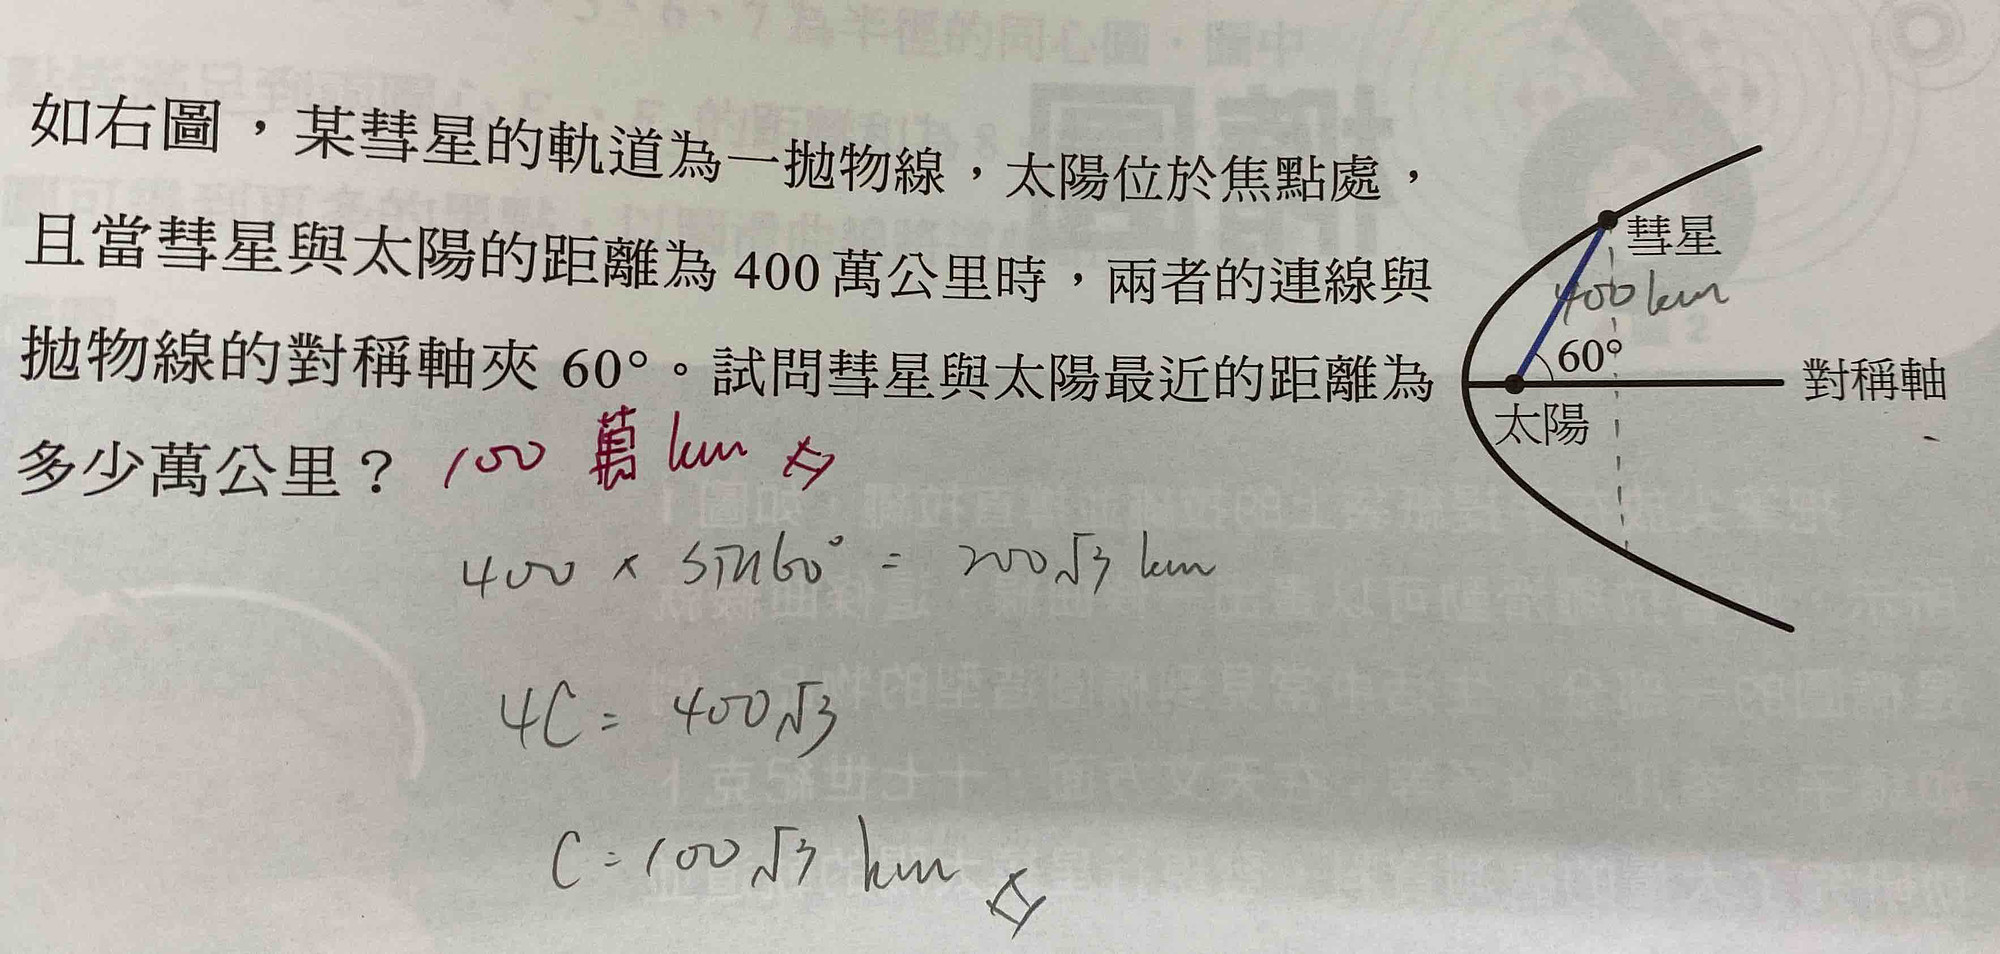 如右圖，某彗星的軌道為一拋物線，太陽位於焦點處，
且當彗星與太陽的距離為 400 萬公里時，兩者的連線與
拋物線的對稱軸夾 60°。試問彗星與太陽最近的距離為
多少萬公里？ 100 萬 km
彗星
400 km
60°
對稱軸
太陽
400 × sin60° = 200√3 km
4C = 400√3
C = 100√3 km